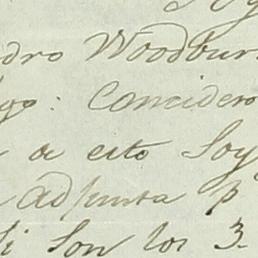 dro Woodbur
go: Concidero
a de esto Soy
adjunta p
si son los 3.